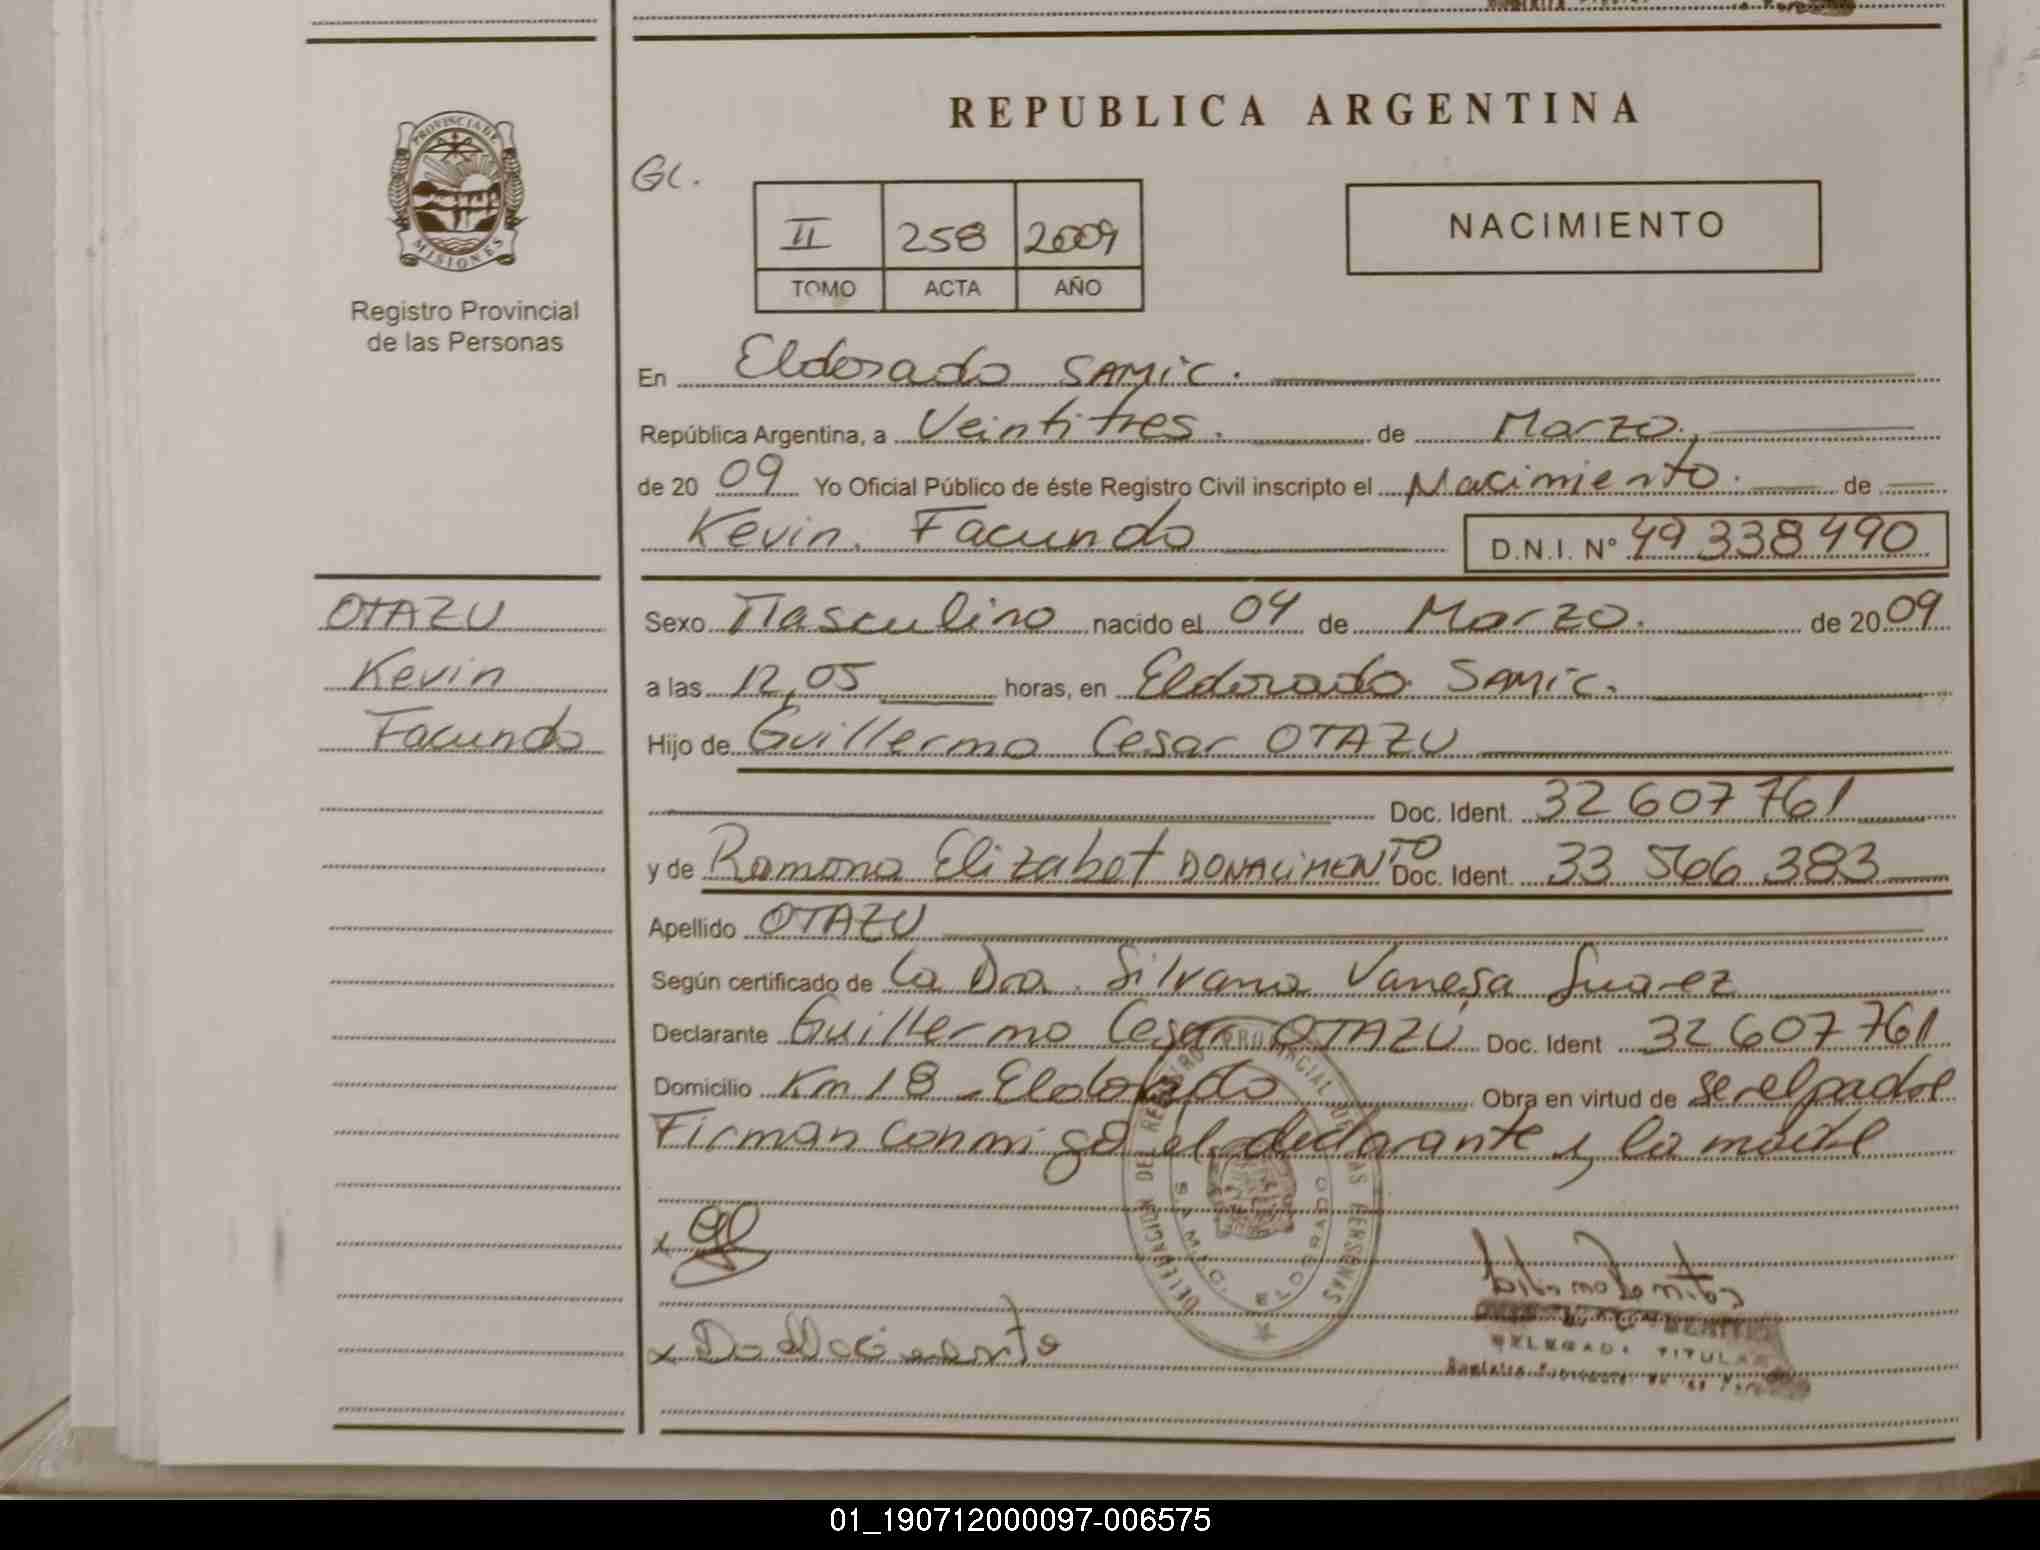 REPUBLICA ARGENTINA
PROVINCIA DE
MISIONES
Registro Provincial
de las Personas
GC.
II 258 2009
TOMO ACTA AÑO
NACIMIENTO
En Eldorado SAMIC.
República Argentina, a Veintitres. de Marzo.
de 20 09 Yo Oficial Público de éste Registro Civil inscripto el Nacimiento. de
Kevin. Facundo D.N.I. N° 49 338 490
OTAZU
Kevin
Facundo
Sexo Masculino nacido el 04 de Marzo. de 20 09
a las 12,05 horas, en Eldorado SAMIC.
Hijo de Guillermo Cesar OTAZU
Doc. Ident. 32 607 761
y de Ramona Elizabet DONACIMENTO Doc. Ident. 33 566 383
Apellido OTAZU
Según certificado de La Dra. Silvana Vanesa Suarez
Declarante Guillermo Cesar OTAZU Doc. Ident 32 607 761
Domicilio Km 18 - Eldorado Obra en virtud de ser el padre
Firman conmigo el declarante y la madre
DELEGACION DEL REGISTRO PROVINCIAL DE LAS PERSONAS
S.A.M.I.C. ELDORADO
x
x Do Nacimento
DELEGADA TITULAR
01_190712000097-006575